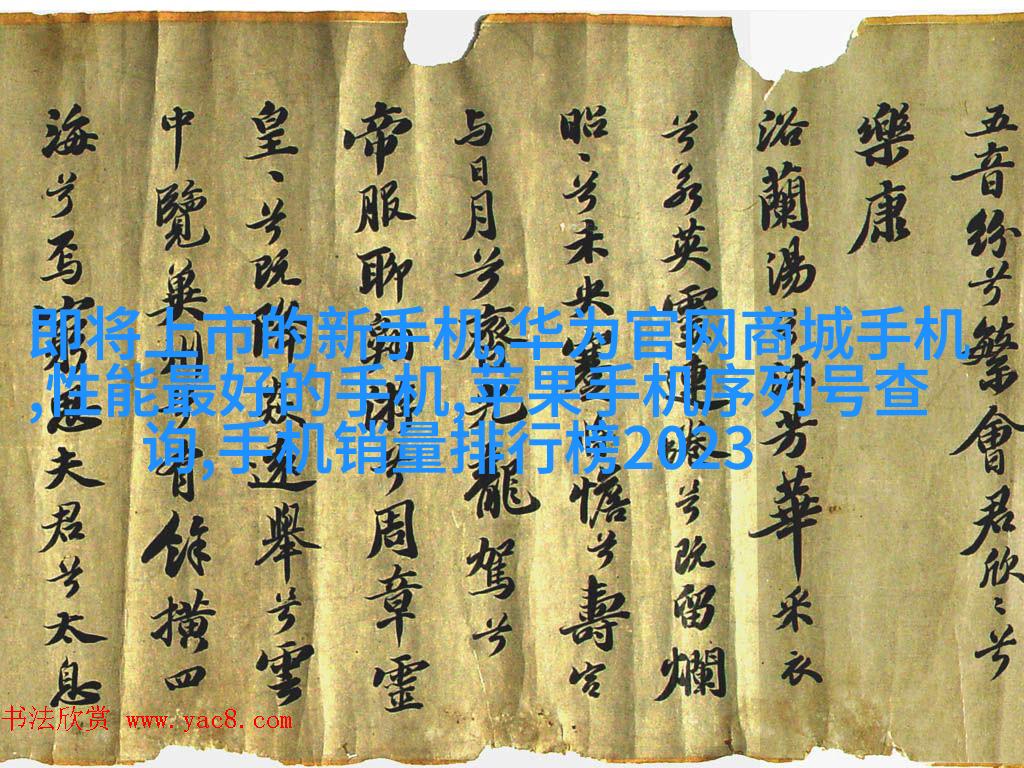 五音紛兮繁會君欣〻兮
樂康
浴蘭湯兮沐芳華采衣
兮若英靈連蜷兮既留爛
昭〻兮未央蹇將憺兮壽宮
与日月兮齊光龍駕兮
帝服聊翱游兮周章靈
皇〻兮既降猋遠舉兮雲
中覽冀州兮有餘橫四
海兮焉窮思夫君兮太息
即将上市的新手机,华为官网商城手机
,性能最好的手机,苹果手机序列号查
询,手机销量排行榜2023
书法欣赏 www.yac8.com